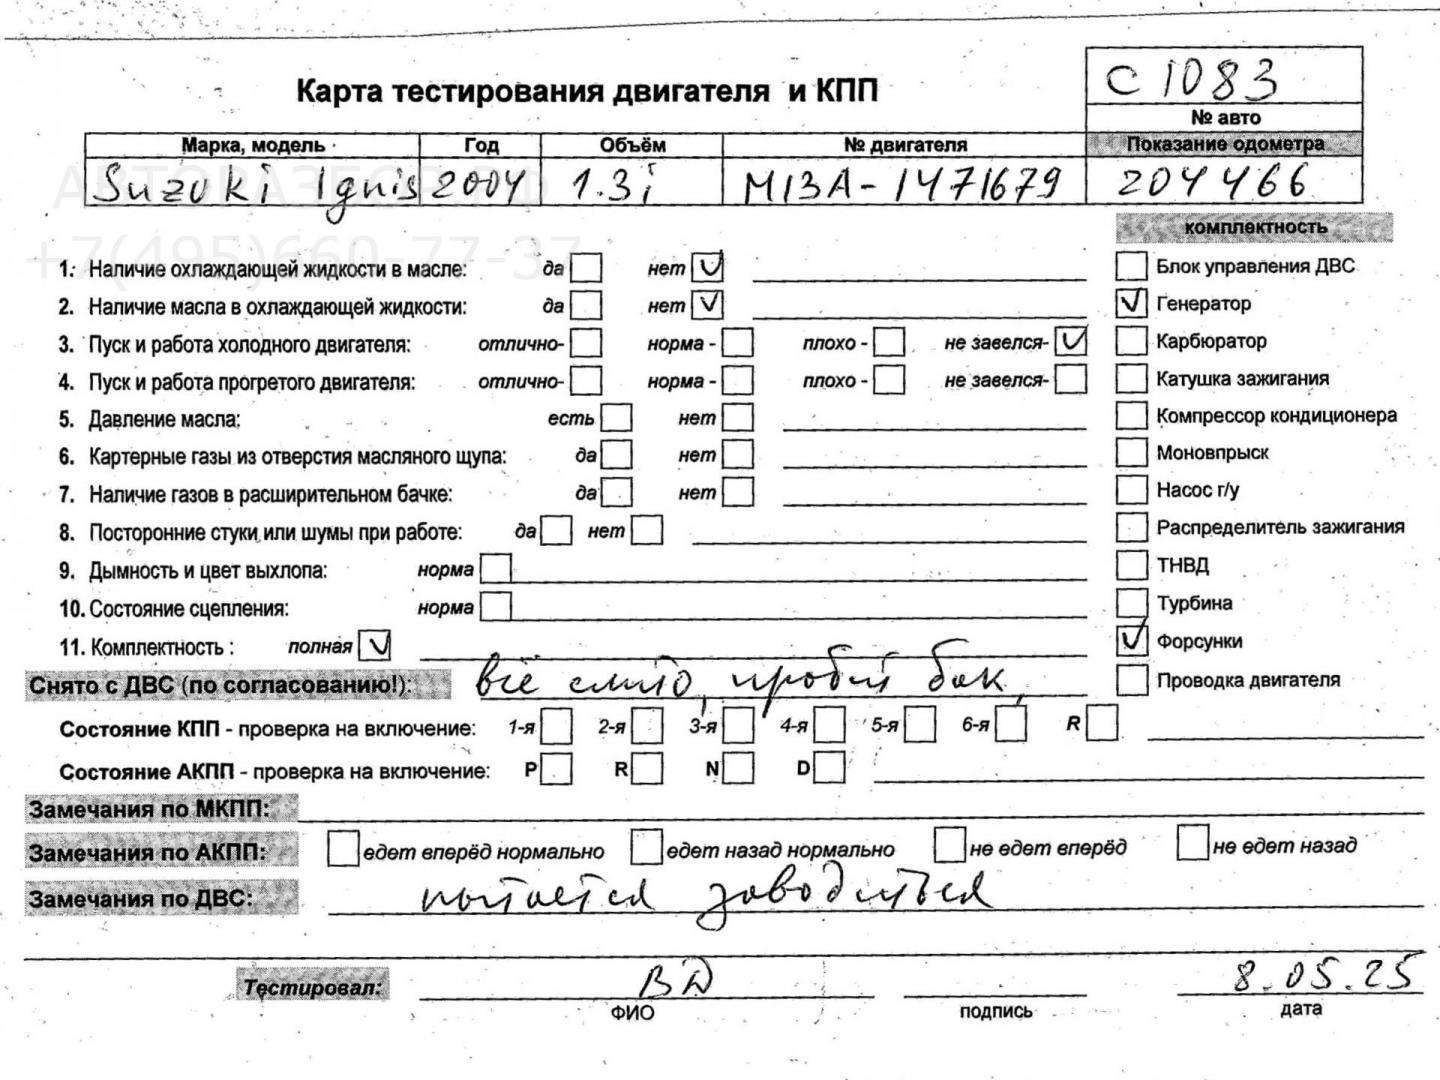 Карта тестирования двигателя и КПП
C 1083
№ авто
Марка, модель Год Объём № двигателя Показание одометра
Suzuki Ignis 2004 1.3i M13A-1471679 204466
АВТОРАЗБОР.РФ
+7(495)660-77-37
комплектность
1. Наличие охлаждающей жидкости в масле: да нет Блок управления ДВС
2. Наличие масла в охлаждающей жидкости: да нет Генератор
3. Пуск и работа холодного двигателя: отлично- норма - плохо - не завелся- Карбюратор
4. Пуск и работа прогретого двигателя: отлично- норма - плохо - не завелся- Катушка зажигания
5. Давление масла: есть нет Компрессор кондиционера
6. Картерные газы из отверстия масляного щупа: да нет Моновпрыск
7. Наличие газов в расширительном бачке: да нет Насос г/у
8. Посторонние стуки или шумы при работе: да нет Распределитель зажигания
9. Дымность и цвет выхлопа: норма ТНВД
10. Состояние сцепления: норма Турбина
11. Комплектность : полная Форсунки
Снято с ДВС (по согласованию!): всё слито, пробит бак, Проводка двигателя
Состояние КПП - проверка на включение: 1-я 2-я 3-я 4-я 5-я 6-я R
Состояние АКПП - проверка на включение: P R N D
Замечания по МКПП:
Замечания по АКПП: едет вперёд нормально едет назад нормально не едет вперёд не едет назад
Замечания по ДВС: пытается заводиться
Тестировал: ВД 8.05.25
ФИО подпись дата